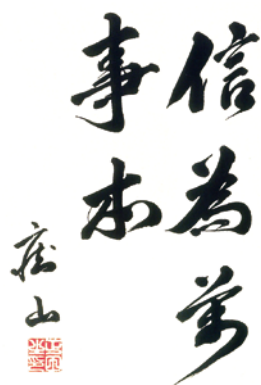 信為萬
事本
山